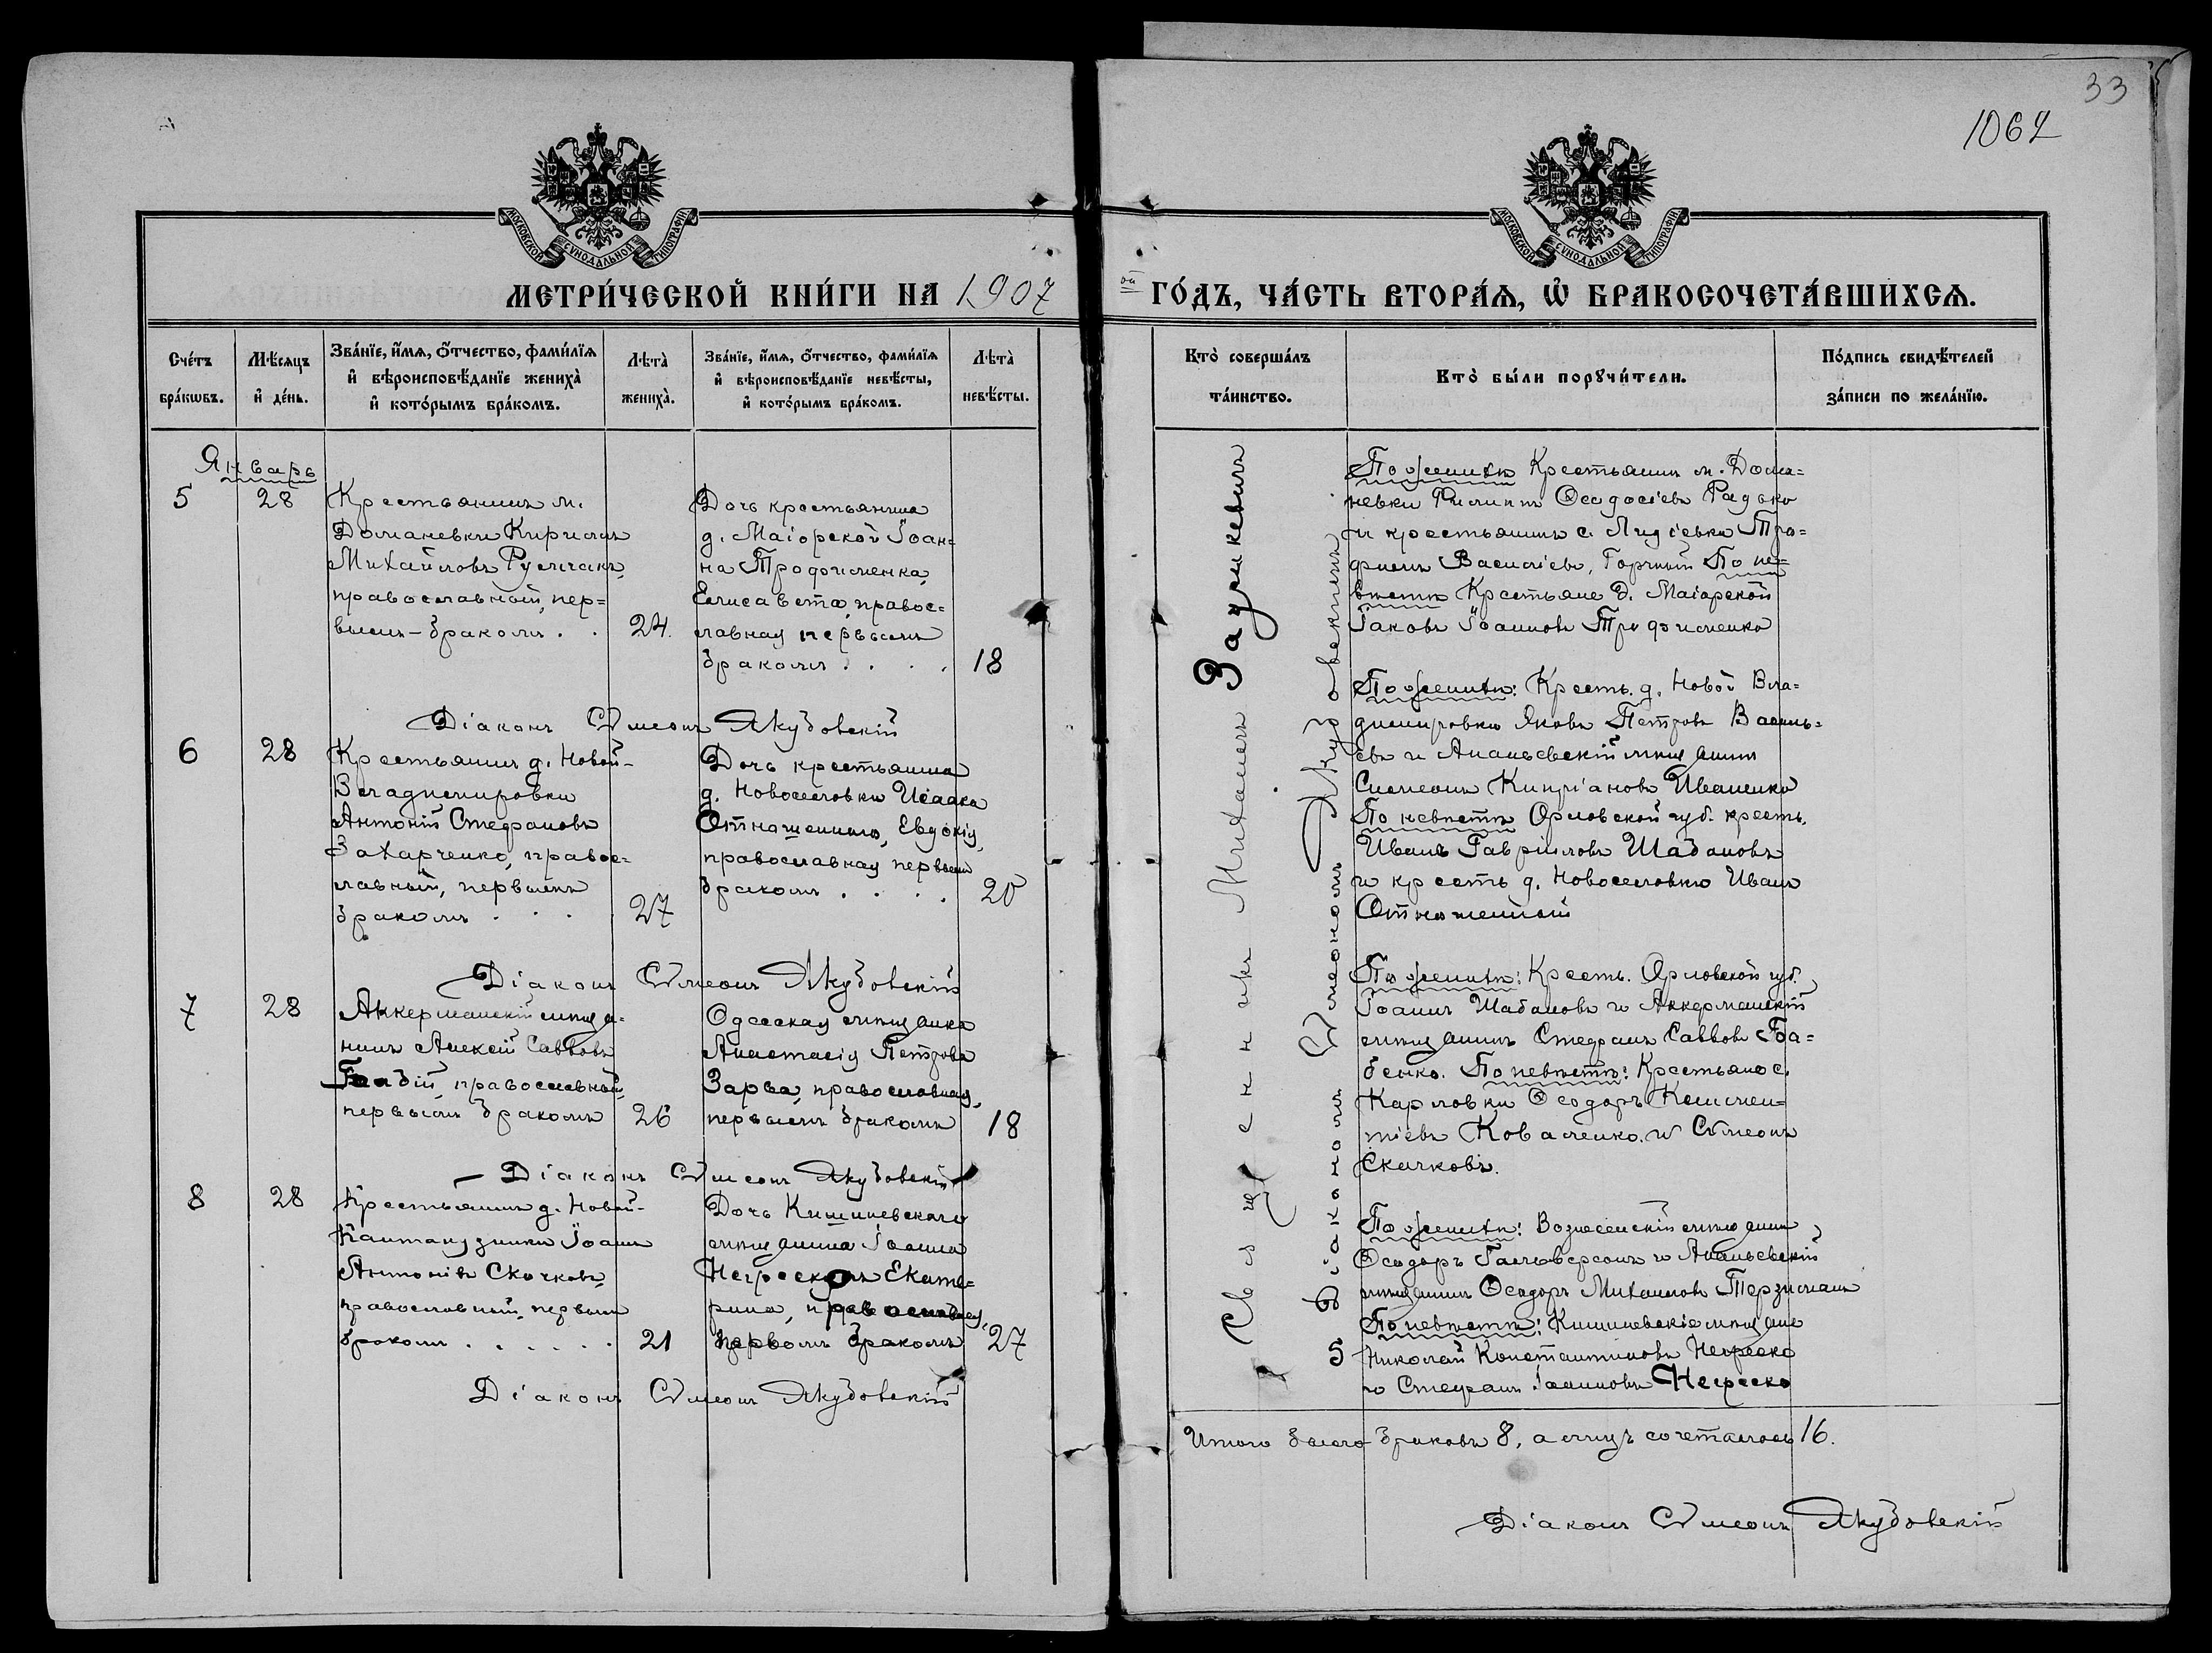 33
1062
МОСКОВСКОЙ СѴНОДАЛЬНОЙ ТИПОГРАФІИ
МОСКОВСКОЙ СѴНОДАЛЬНОЙ ТИПОГРАФІИ
МЕТРИ́ЧЕСКОЙ КНИ́ГИ НА 1907 ой ГО́ДЪ, ЧА́СТЬ ВТОРА́Ѧ, Ѡ҆ БРАКОСОЧЕТА́ВШИХСѦ.
Сче́тъ бра́кѡвъ.
Мѣ́сѧцъ и҆ де́нь.
Зва́нїе, и҆́мѧ, ѻ҆́тчество, фами́лїѧ
и҆ вѣроисповѣ́данїе жениха̀
и҆ кото́рымъ бра́комъ.
Лѣта̀ жениха̀.
Зва́нїе, и҆́мѧ, ѻ҆́тчество, фами́лїѧ
и҆ вѣроисповѣ́данїе невѣ́сты,
и҆ кото́рымъ бра́комъ.
Лѣта̀ невѣ́сты.
Кто̀ соверша́лъ та́инство.
Кто̀ бы́ли порꙋчи́тели.
По́дпись свидѣ́телей за́писи по жела́нїю.
Январь
5
28
Крестьянинъ м.
Доманевки Кириллъ
Михайловъ Румчакъ,
православный, пер=
вымъ-бракомъ . .
24.
Дочь крестьянина
д. Маіорской Іоан=
на Трофименка,
Елисавета, правос=
лавная первымъ
бракомъ . . . .
18
Діаконъ Сѵмеонъ Якубовскій
6
28
Крестьянинъ д. Новой-
Владимировки
Антоній Стефановъ
Захарченко, правос=
лавный, первымъ
бракомъ . . . .
27
Дочь крестьянина
д. Новоселовки Исаака
Отношенного, Евдокія,
православная первымъ
бракомъ . . . .
20
Діаконъ Сѵмеонъ Якубовскій
7
28
Аккерманскій мѣща=
нинъ Алексій Саввовъ
православный,
первымъ бракомъ
26
Одесская мѣщанка
Анастасія Петрова
Зарва, православная,
первымъ бракомъ
18
Діаконъ Сѵмеонъ Якубовскій
8
28
Крестьянинъ д. Новой-
Кантакузинки Іоаннъ
Антоніевъ Скачковъ,
православный, первымъ
бракомъ . . . . . .
21
Дочь Кишиневскаго
мѣщанина Іоанна
Негреско Екате=
рина, православная,
первымъ бракомъ
27
Діаконъ Сѵмеонъ Якубовскій
Священникъ Михаилъ Заушкевичъ
съ діакономъ Сѵмеономъ Якубовскимъ.
По женихѣ Крестьянинъ м. Дома=
невки Филиппъ Ѳеодосіевъ Радько
и крестьянинъ с. Лидіевки Тро=
фимъ Василіевъ, Горчный По не=
вѣстѣ Крестьяне д. Маіорской
Іаковъ Іоанновъ Трофименко
По женихѣ: Крест. д. Новой Вла=
димировки Яковъ Петровъ Василь=
евъ и Ананьевскій мѣщанинъ
Симеонъ Кипріановъ Иваненко
По невѣстѣ Орловской губ. крест.
Иванъ Гавріиловъ Шабановъ
и крест д. Новоселовки Иванъ
Отношенный
По женихѣ: Крест. Орловской губ.
Іоаннъ Шабановъ и Аккерманскій
мѣщанинъ Стефанъ Саввовъ Ба=
бенко. По невѣстѣ: Крестьяне с.
Карловки Ѳеодоръ Климен=
тіевъ Коваленко. и Сѵмеонъ
Скачковъ.
По женихѣ: Вознесенскій мѣщанинъ
Ѳеодоръ Гальверсонъ и Ананьевскій
мѣщанинъ Ѳеодоръ Михаиловъ Терзиманъ
По невѣстѣ: Кишиневскіе мѣщане
Николай Константиновъ Негреско
и Стефанъ Іоанновъ Негреско
Итого было браковъ 8, а лицъ сочеталось 16.
Діаконъ Сѵмеонъ Якубовскій